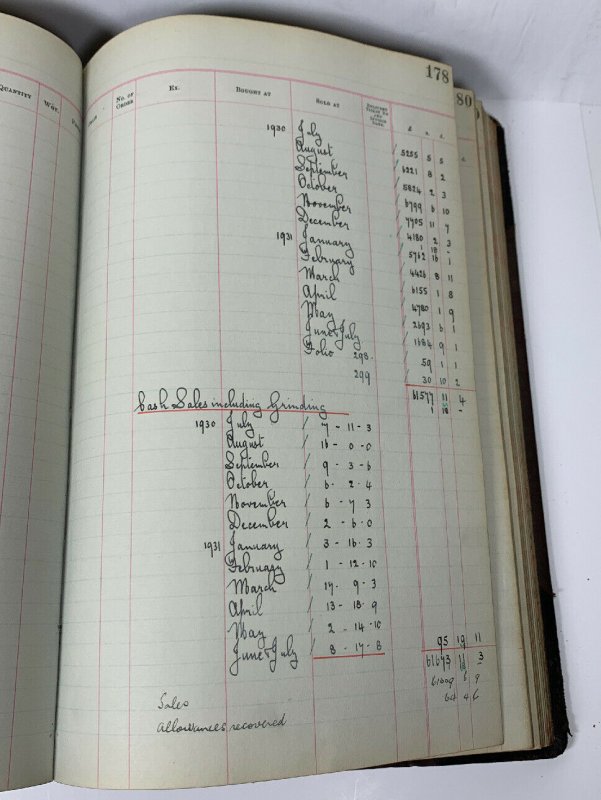 178
80
QUANTITY WGT. No. OF ORDER Ex. BOUGHT AT SOLD AT £ s. d.
1930 July / 5255 5 5
August / 6221 8 2
September / 5824 2 3
October / 6799 6 10
November / 7705 11 7
December / 4180 2 3
1 18 -
1931 January / 5762 16 1
February / 4426 8 11
March / 6155 1 8
April / 4780 1 9
May / 2693 6 1
June & July / 1684 9 1
Folio 298 / 59 1 1
299 / 30 10 2
61577 11 4
1 18 -
Cash Sales including Grinding
1930 July / 7 - 11 - 3
August / 16 - 0 - 0
September / 9 - 3 - 6
October / 6 - 2 - 4
November / 6 - 7 - 3
December / 2 - 6 - 0
1931 January / 3 - 16 - 3
February / 1 - 12 - 10
March / 17 - 9 - 3
April / 13 - 18 - 9
May / 2 - 14 - 10
June & July / 8 - 17 - 8
95 19 11
61673 11 3
Sales 61609 6 9
Allowances recovered 64 4 6